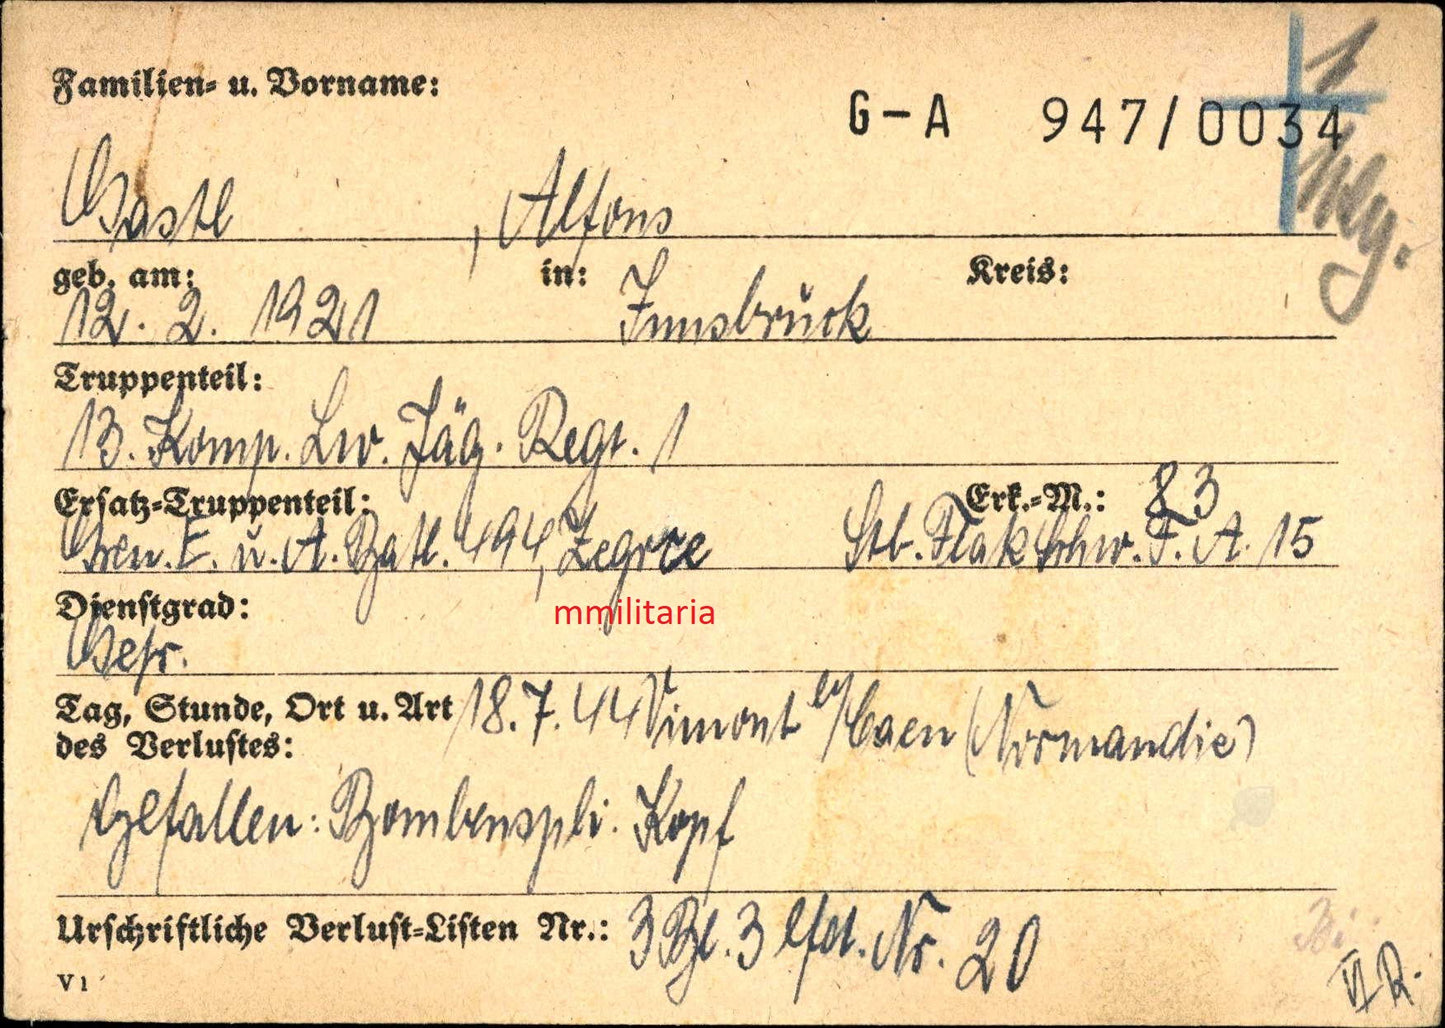 Familien- u. Vorname:
G-A 947/0034
1
Gastl , Alfons
geb. am: in: Kreis:
12. 2. 1921 Innsbruck
Truppenteil:
13. Komp. Lw. Jäg. Regt. 1
Ersatz-Truppenteil: Erk.-M.: 83
Gren. E. u. A. Batl. 494, Zegrze Stb. Flak Schw. F. A. 15
mmilitaria
Dienstgrad:
Gefr.
Tag, Stunde, Ort u. Art 18.7.44 Vimont b/ Caen (Normandie)
des Verlustes:
gefallen: Bombenspli. Kopf
Urschriftliche Verlust-Listen Nr.: 3 Bl. 3 lfd. Nr. 20
V 1